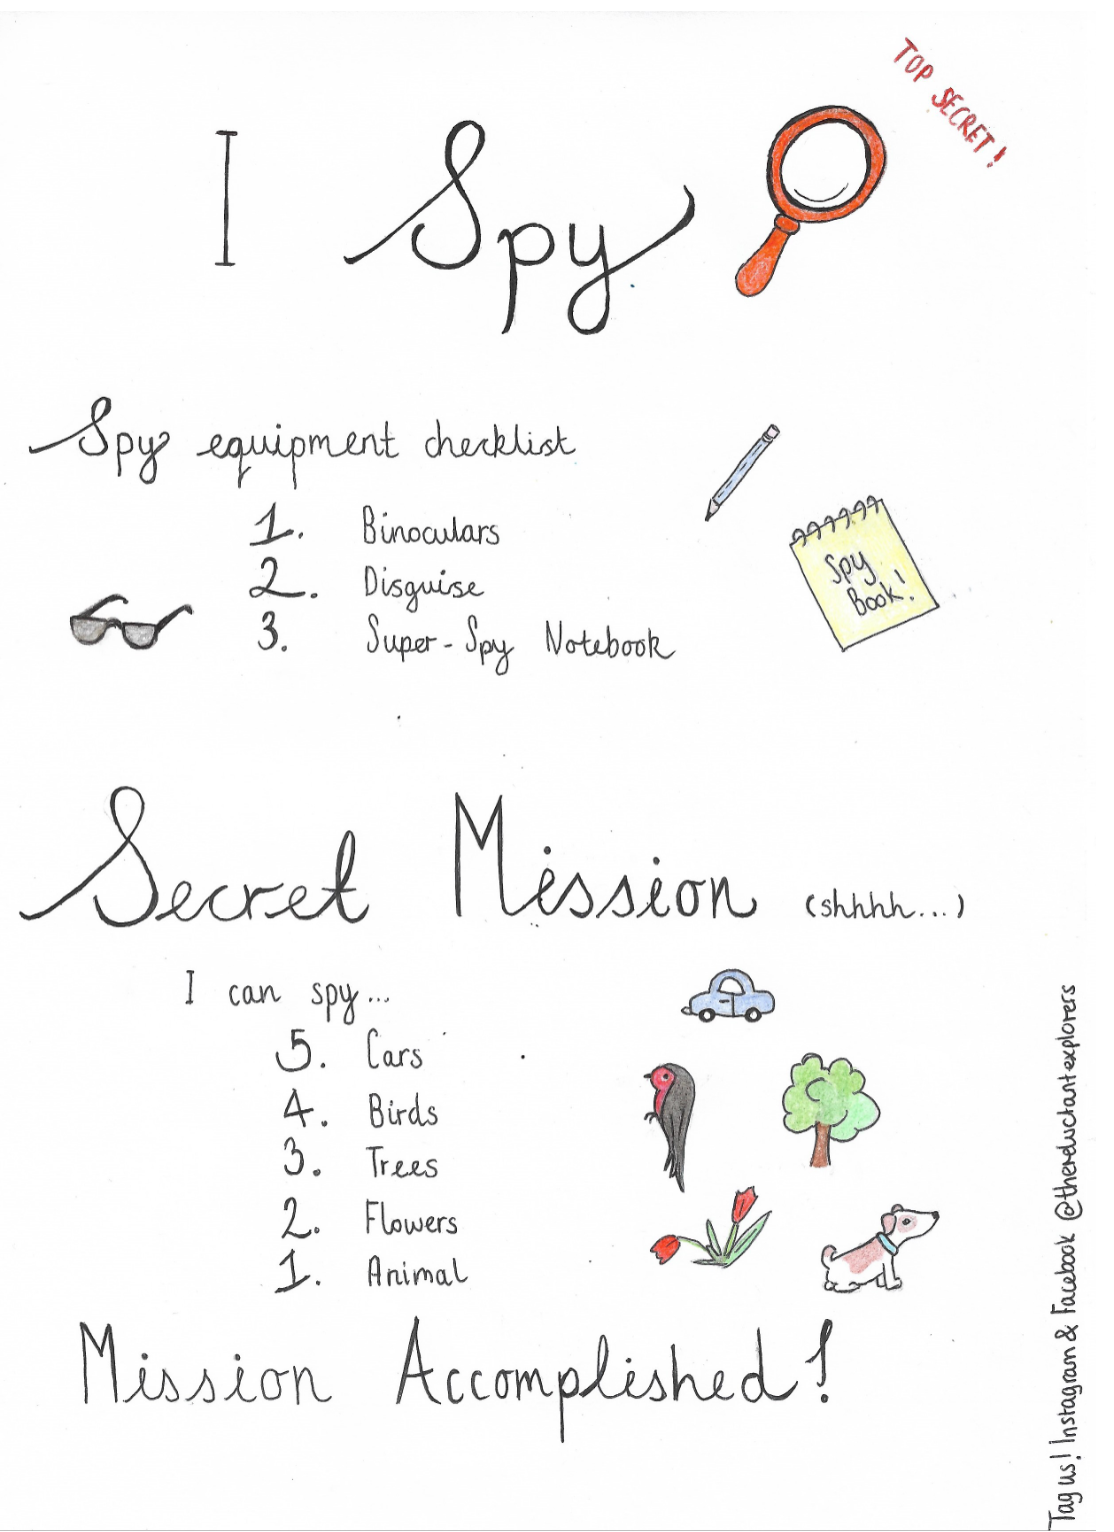 TOP SECRET!
I Spy
Spy equipment checklist
1. Binoculars
2. Disguise
3. Super-Spy Notebook
Spy
Book!
Secret Mission (shhhh...)
I can spy...
5. Cars
4. Birds
3. Trees
2. Flowers
1. Animal
Mission Accomplished!
Tag us! Instagram & Facebook @thereluctantexplorers